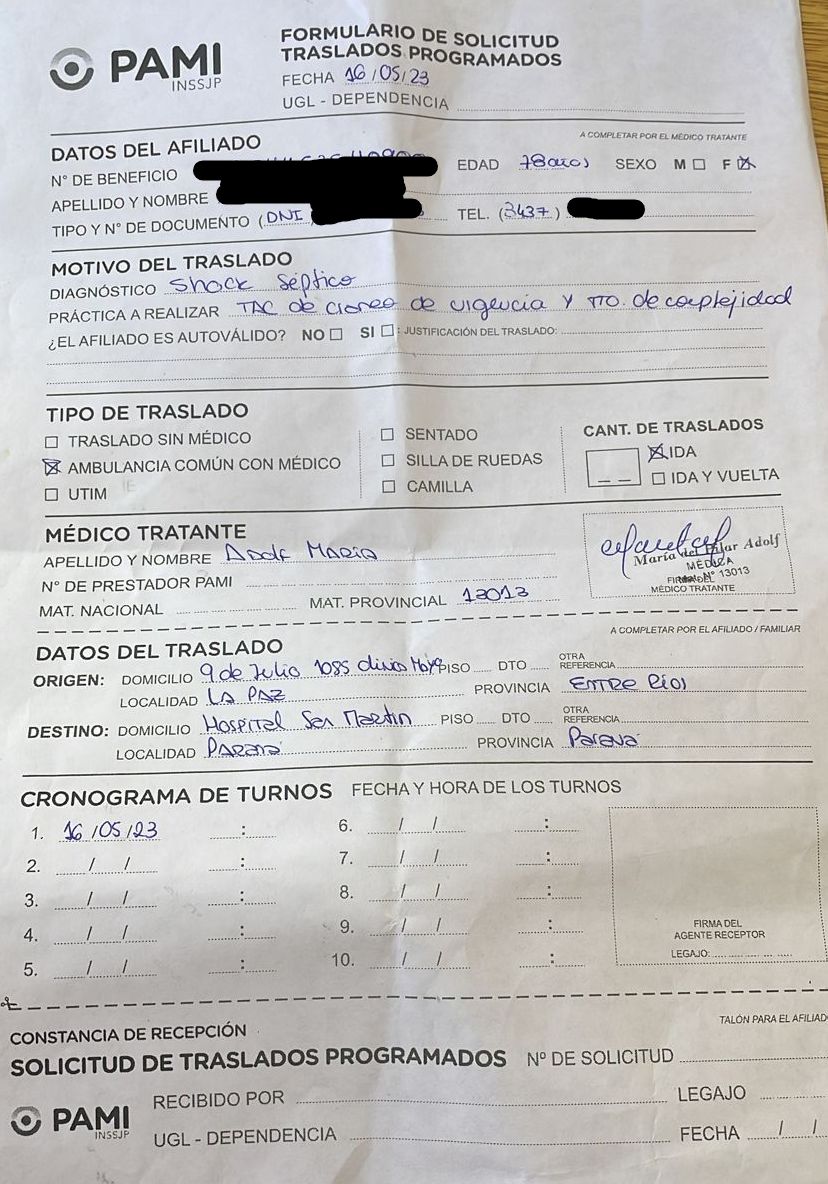 PAMI
INSSJP
FORMULARIO DE SOLICITUD
TRASLADOS PROGRAMADOS
FECHA 16/05/23
UGL - DEPENDENCIA
A COMPLETAR POR EL MÉDICO TRATANTE
DATOS DEL AFILIADO
N° DE BENEFICIO EDAD 78 años SEXO M F
APELLIDO Y NOMBRE
TIPO Y N° DE DOCUMENTO (DNI TEL. (3437)
MOTIVO DEL TRASLADO
DIAGNÓSTICO Shock Séptico
PRÁCTICA A REALIZAR TAC de craneo de urgencia y TTO. de complejidad
¿EL AFILIADO ES AUTOVÁLIDO? NO SI : JUSTIFICACIÓN DEL TRASLADO:
TIPO DE TRASLADO
TRASLADO SIN MÉDICO
AMBULANCIA COMÚN CON MÉDICO
UTIM
SENTADO
SILLA DE RUEDAS
CAMILLA
CANT. DE TRASLADOS
IDA
IDA Y VUELTA
MÉDICO TRATANTE
APELLIDO Y NOMBRE Adolf Maria
N° DE PRESTADOR PAMI
MAT. NACIONAL MAT. PROVINCIAL 13013
María del Pilar Adolf
MÉDICA
N° 13013
FIRMA DEL
MÉDICO TRATANTE
A COMPLETAR POR EL AFILIADO / FAMILIAR
DATOS DEL TRASLADO
ORIGEN: DOMICILIO 9 de Julio 1085 PISO DTO OTRA REFERENCIA
LOCALIDAD LA PAZ PROVINCIA Entre Ríos
DESTINO: DOMICILIO Hospital San Martin PISO DTO OTRA REFERENCIA
LOCALIDAD Paraná PROVINCIA Paraná
CRONOGRAMA DE TURNOS FECHA Y HORA DE LOS TURNOS
1. 16/05/23 : 6. / / :
2. / / : 7. / / :
3. / / : 8. / / :
4. / / : 9. / / :
5. / / : 10. / / :
FIRMA DEL
AGENTE RECEPTOR
LEGAJO:
TALÓN PARA EL AFILIADO
CONSTANCIA DE RECEPCIÓN
SOLICITUD DE TRASLADOS PROGRAMADOS N° DE SOLICITUD
PAMI
INSSJP
RECIBIDO POR LEGAJO
UGL - DEPENDENCIA FECHA / /